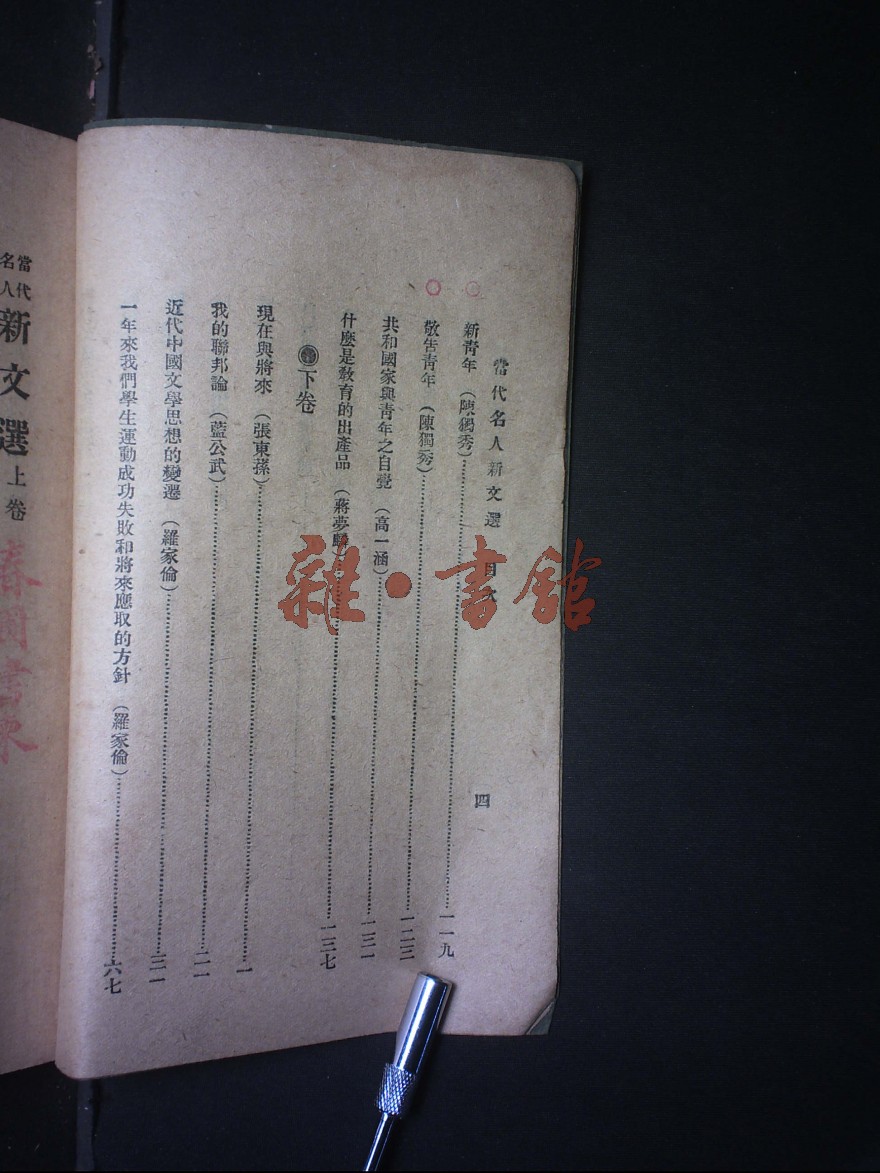 當代名人新文選 目次 四
新青年 （陳獨秀）⋯⋯一一九
敬告青年 （陳獨秀）⋯⋯一二三
共和國家與青年之自覺 （高一涵）⋯⋯一三一
什麼是教育的出產品 （蔣夢麟）⋯⋯一三七
下卷
現在與將來 （張東蓀）⋯⋯一
我的聯邦論 （藍公武）⋯⋯二一
近代中國文學思想的變遷 （羅家倫）⋯⋯三一
一年來我們學生運動成功失敗和將來應取的方針 （羅家倫）⋯⋯六七
當代名人新文選上卷
雜·書館